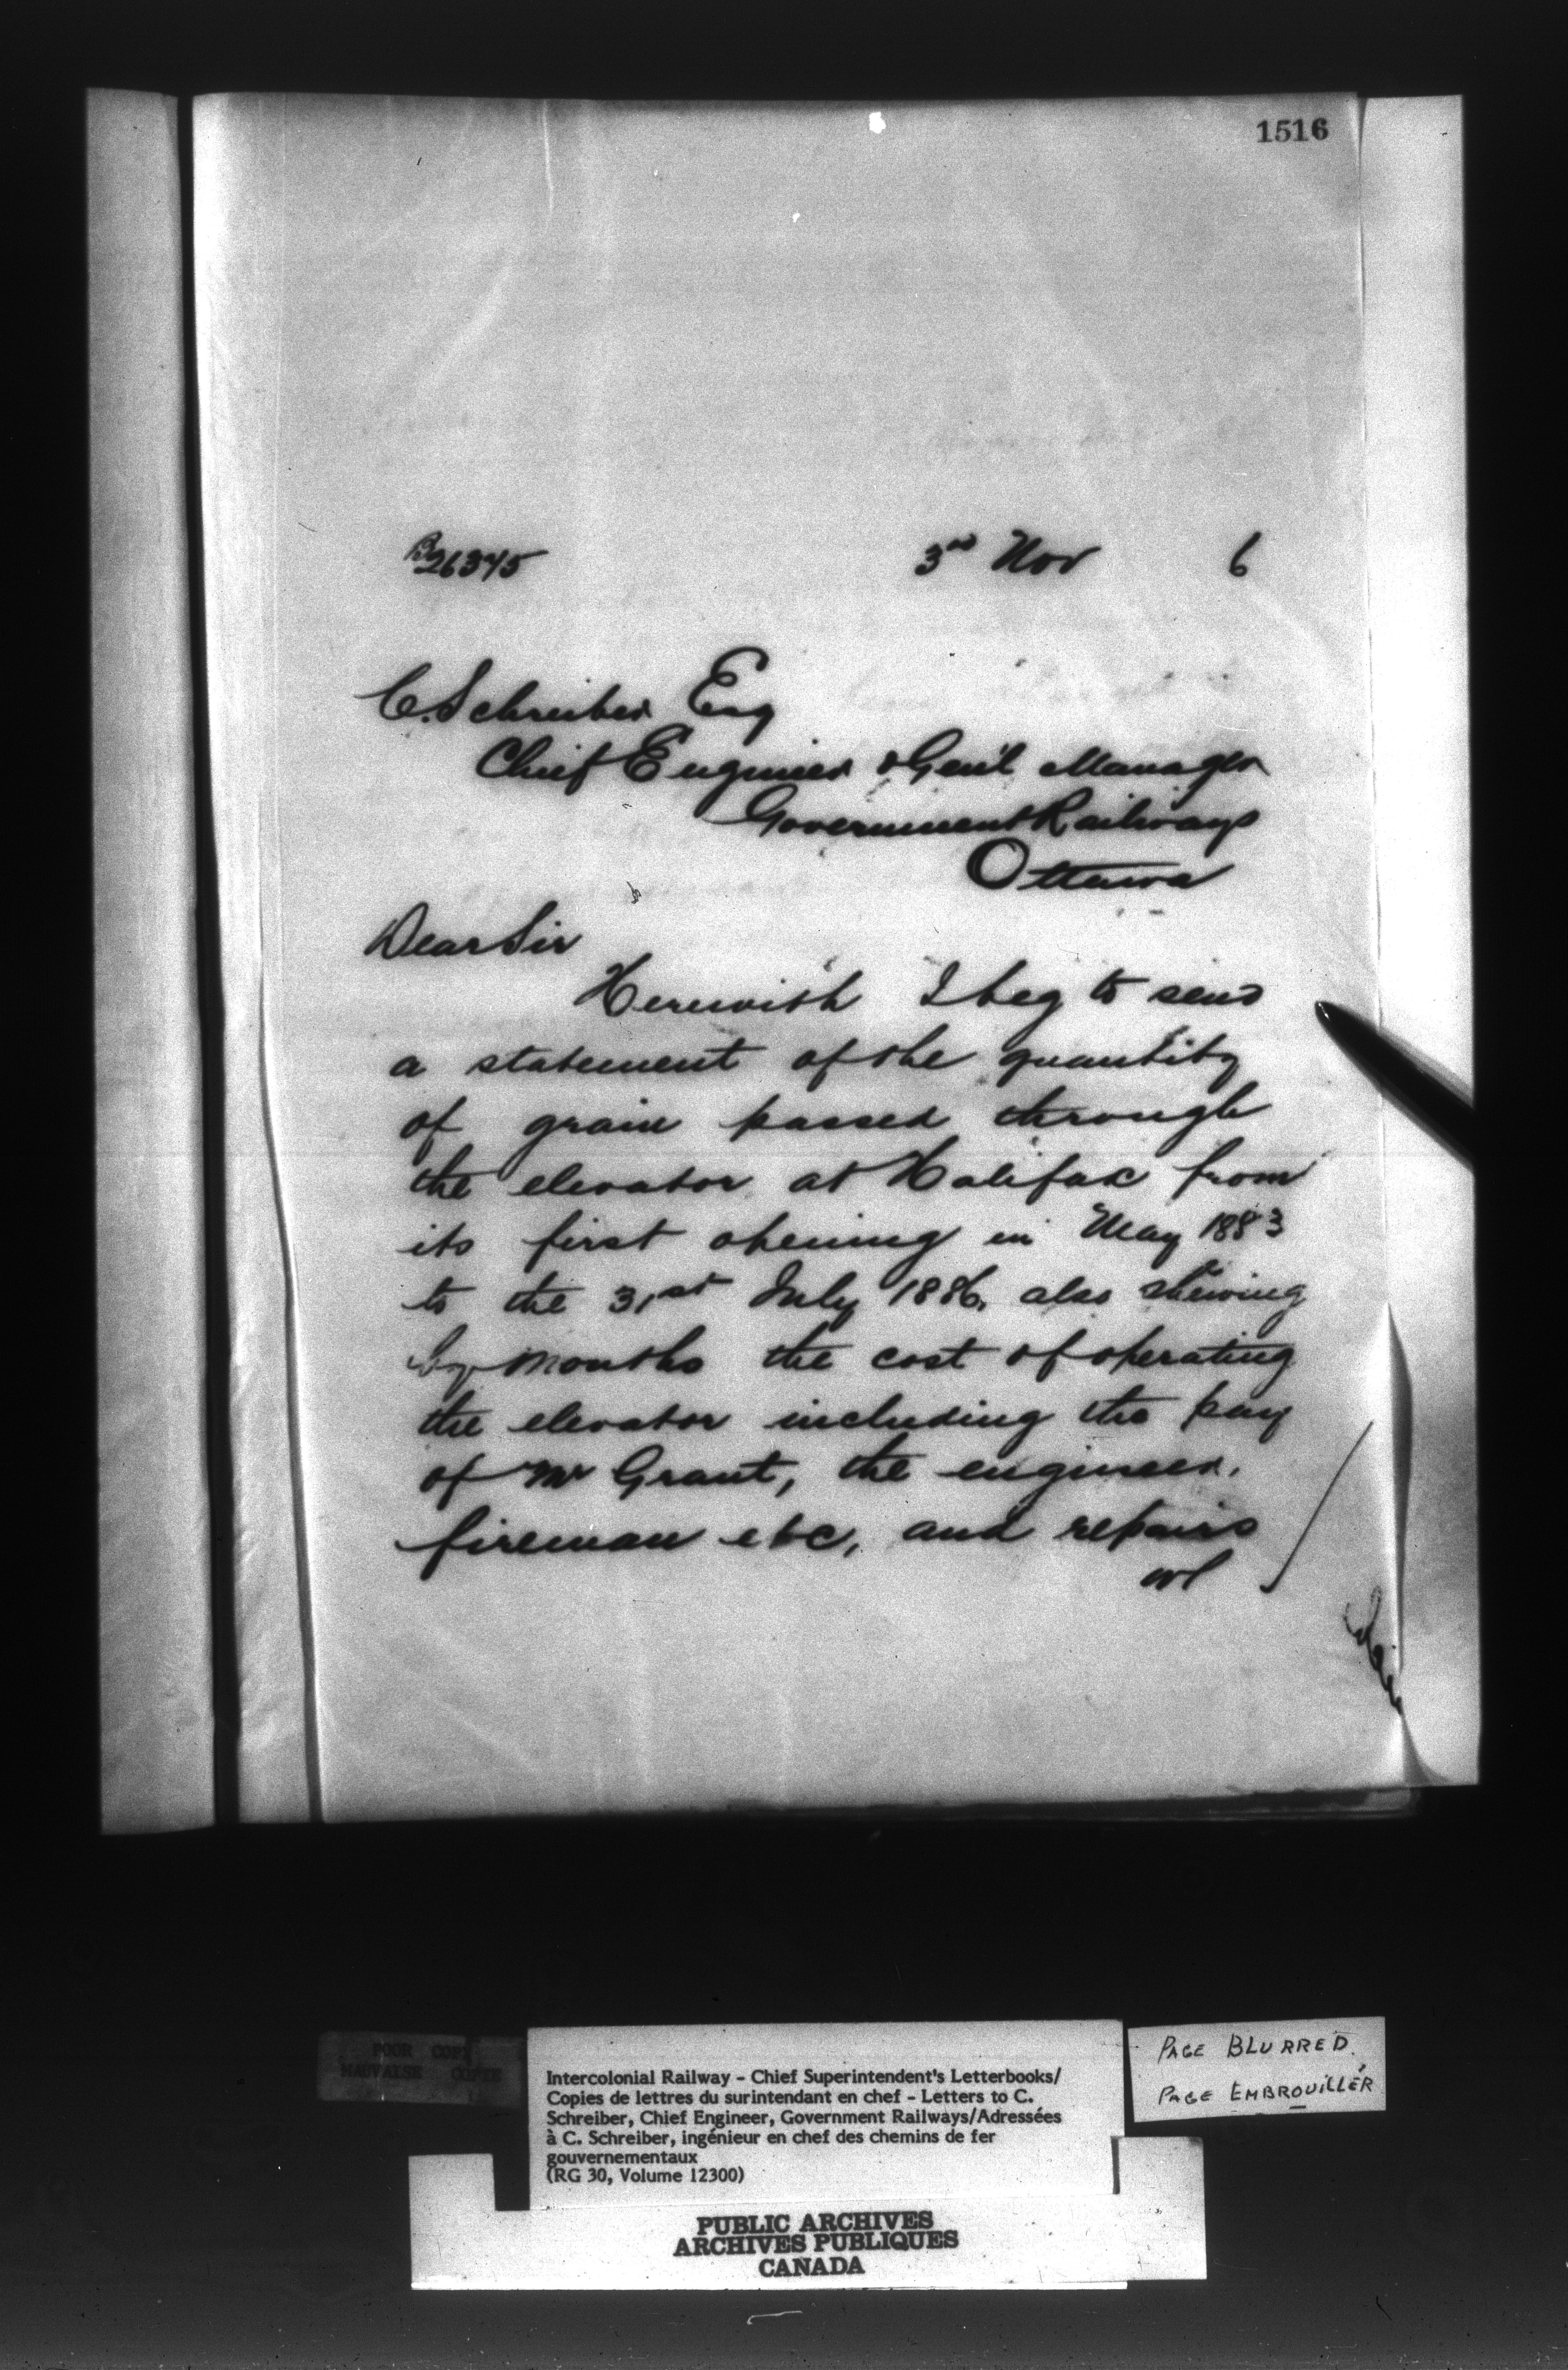 1516
B 26345 3rd Nov 6
C. Schreiber Esq
Chief Engineer & Gen'l Manager
Government Railways
Ottawa
Dear Sir
Herewith I beg to send
a statement of the quantity
of grain passed through
the elevator at Halifax from
its first opening in May 1883
to the 31st July 1886, also shewing
by months the cost of operating
the elevator including the pay
of Mr Grant, the engineer,
fireman etc, and repairs
POOR COPY
MAUVAISE COPIE
Intercolonial Railway - Chief Superintendent's Letterbooks/
Copies de lettres du surintendant en chef - Letters to C.
Schreiber, Chief Engineer, Government Railways/Adressées
à C. Schreiber, ingénieur en chef des chemins de fer
gouvernementaux
(RG 30, Volume 12300)
PAGE BLURRED.
PAGE EMBROUILLÉR
PUBLIC ARCHIVES
ARCHIVES PUBLIQUES
CANADA